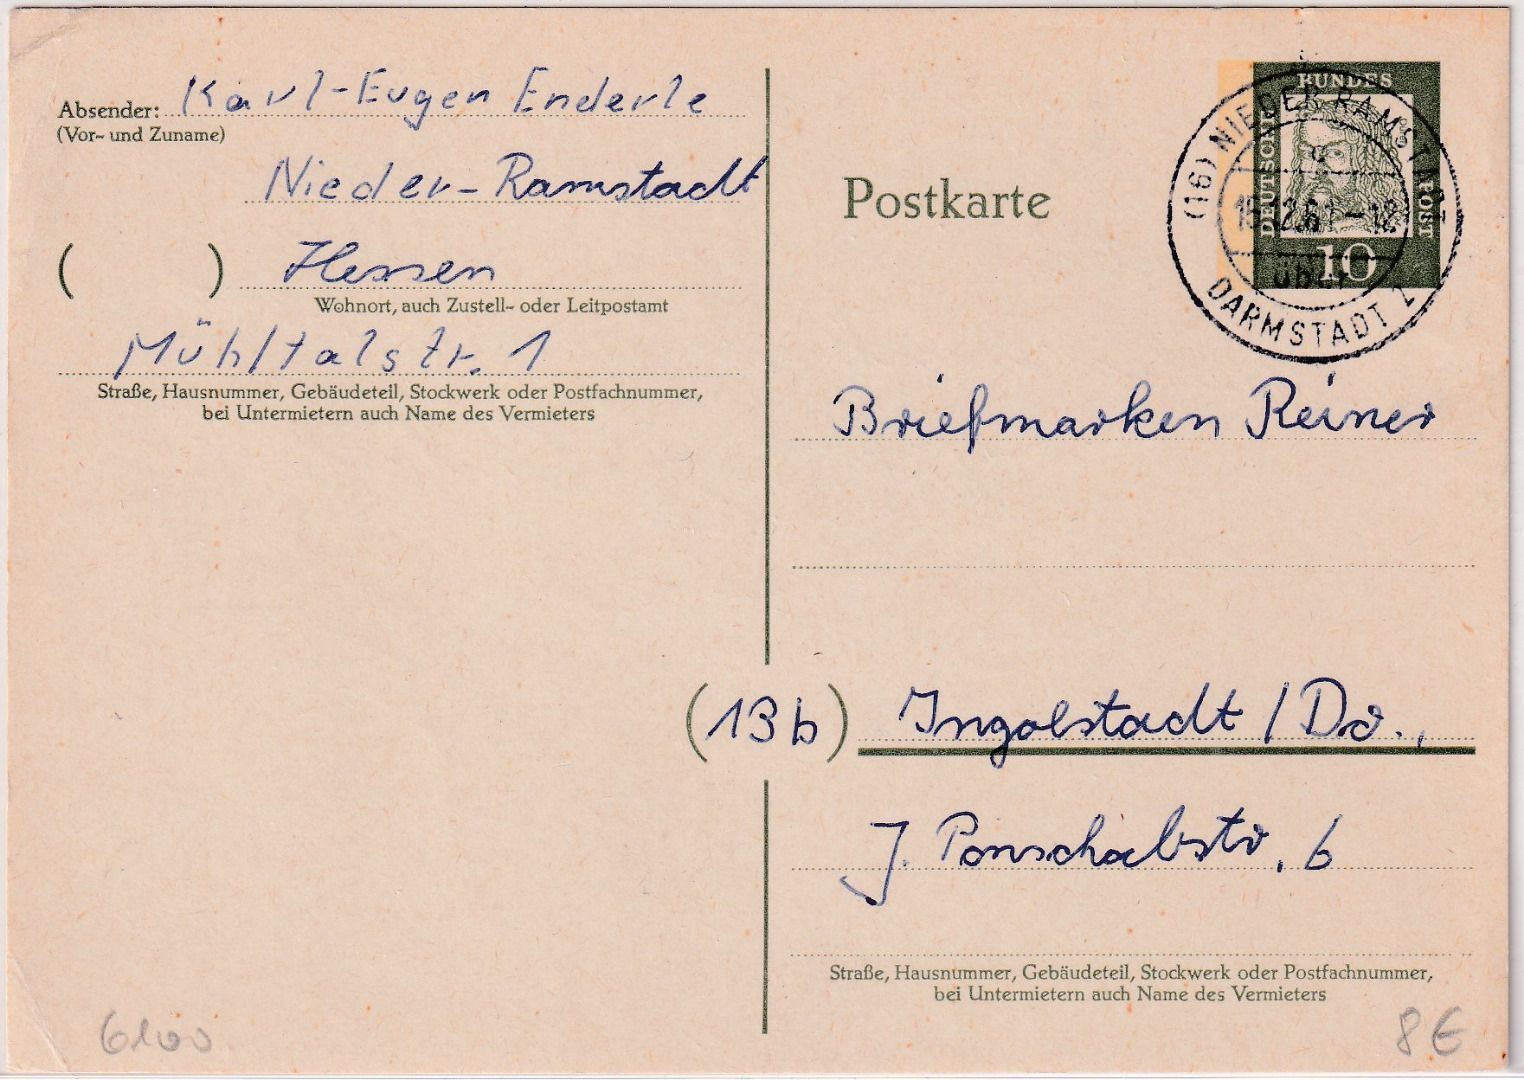 Absender: Karl-Eugen Enderle
(Vor- und Zuname)
Nieder-Ramstadt
( ) Hessen
Wohnort, auch Zustell- oder Leitpostamt
Mühltalstr. 1
Straße, Hausnummer, Gebäudeteil, Stockwerk oder Postfachnummer,
bei Untermietern auch Name des Vermieters
DEUTSCHE BUNDESPOST
10
(16) NIEDER RAMSTADT
c
12.61
über
DARMSTADT 2
Postkarte
Briefmarken Reiner
(13b) Ingolstadt/Do.,
J. Ponschabstr. 6
Straße, Hausnummer, Gebäudeteil, Stockwerk oder Postfachnummer,
bei Untermietern auch Name des Vermieters
6100
8€